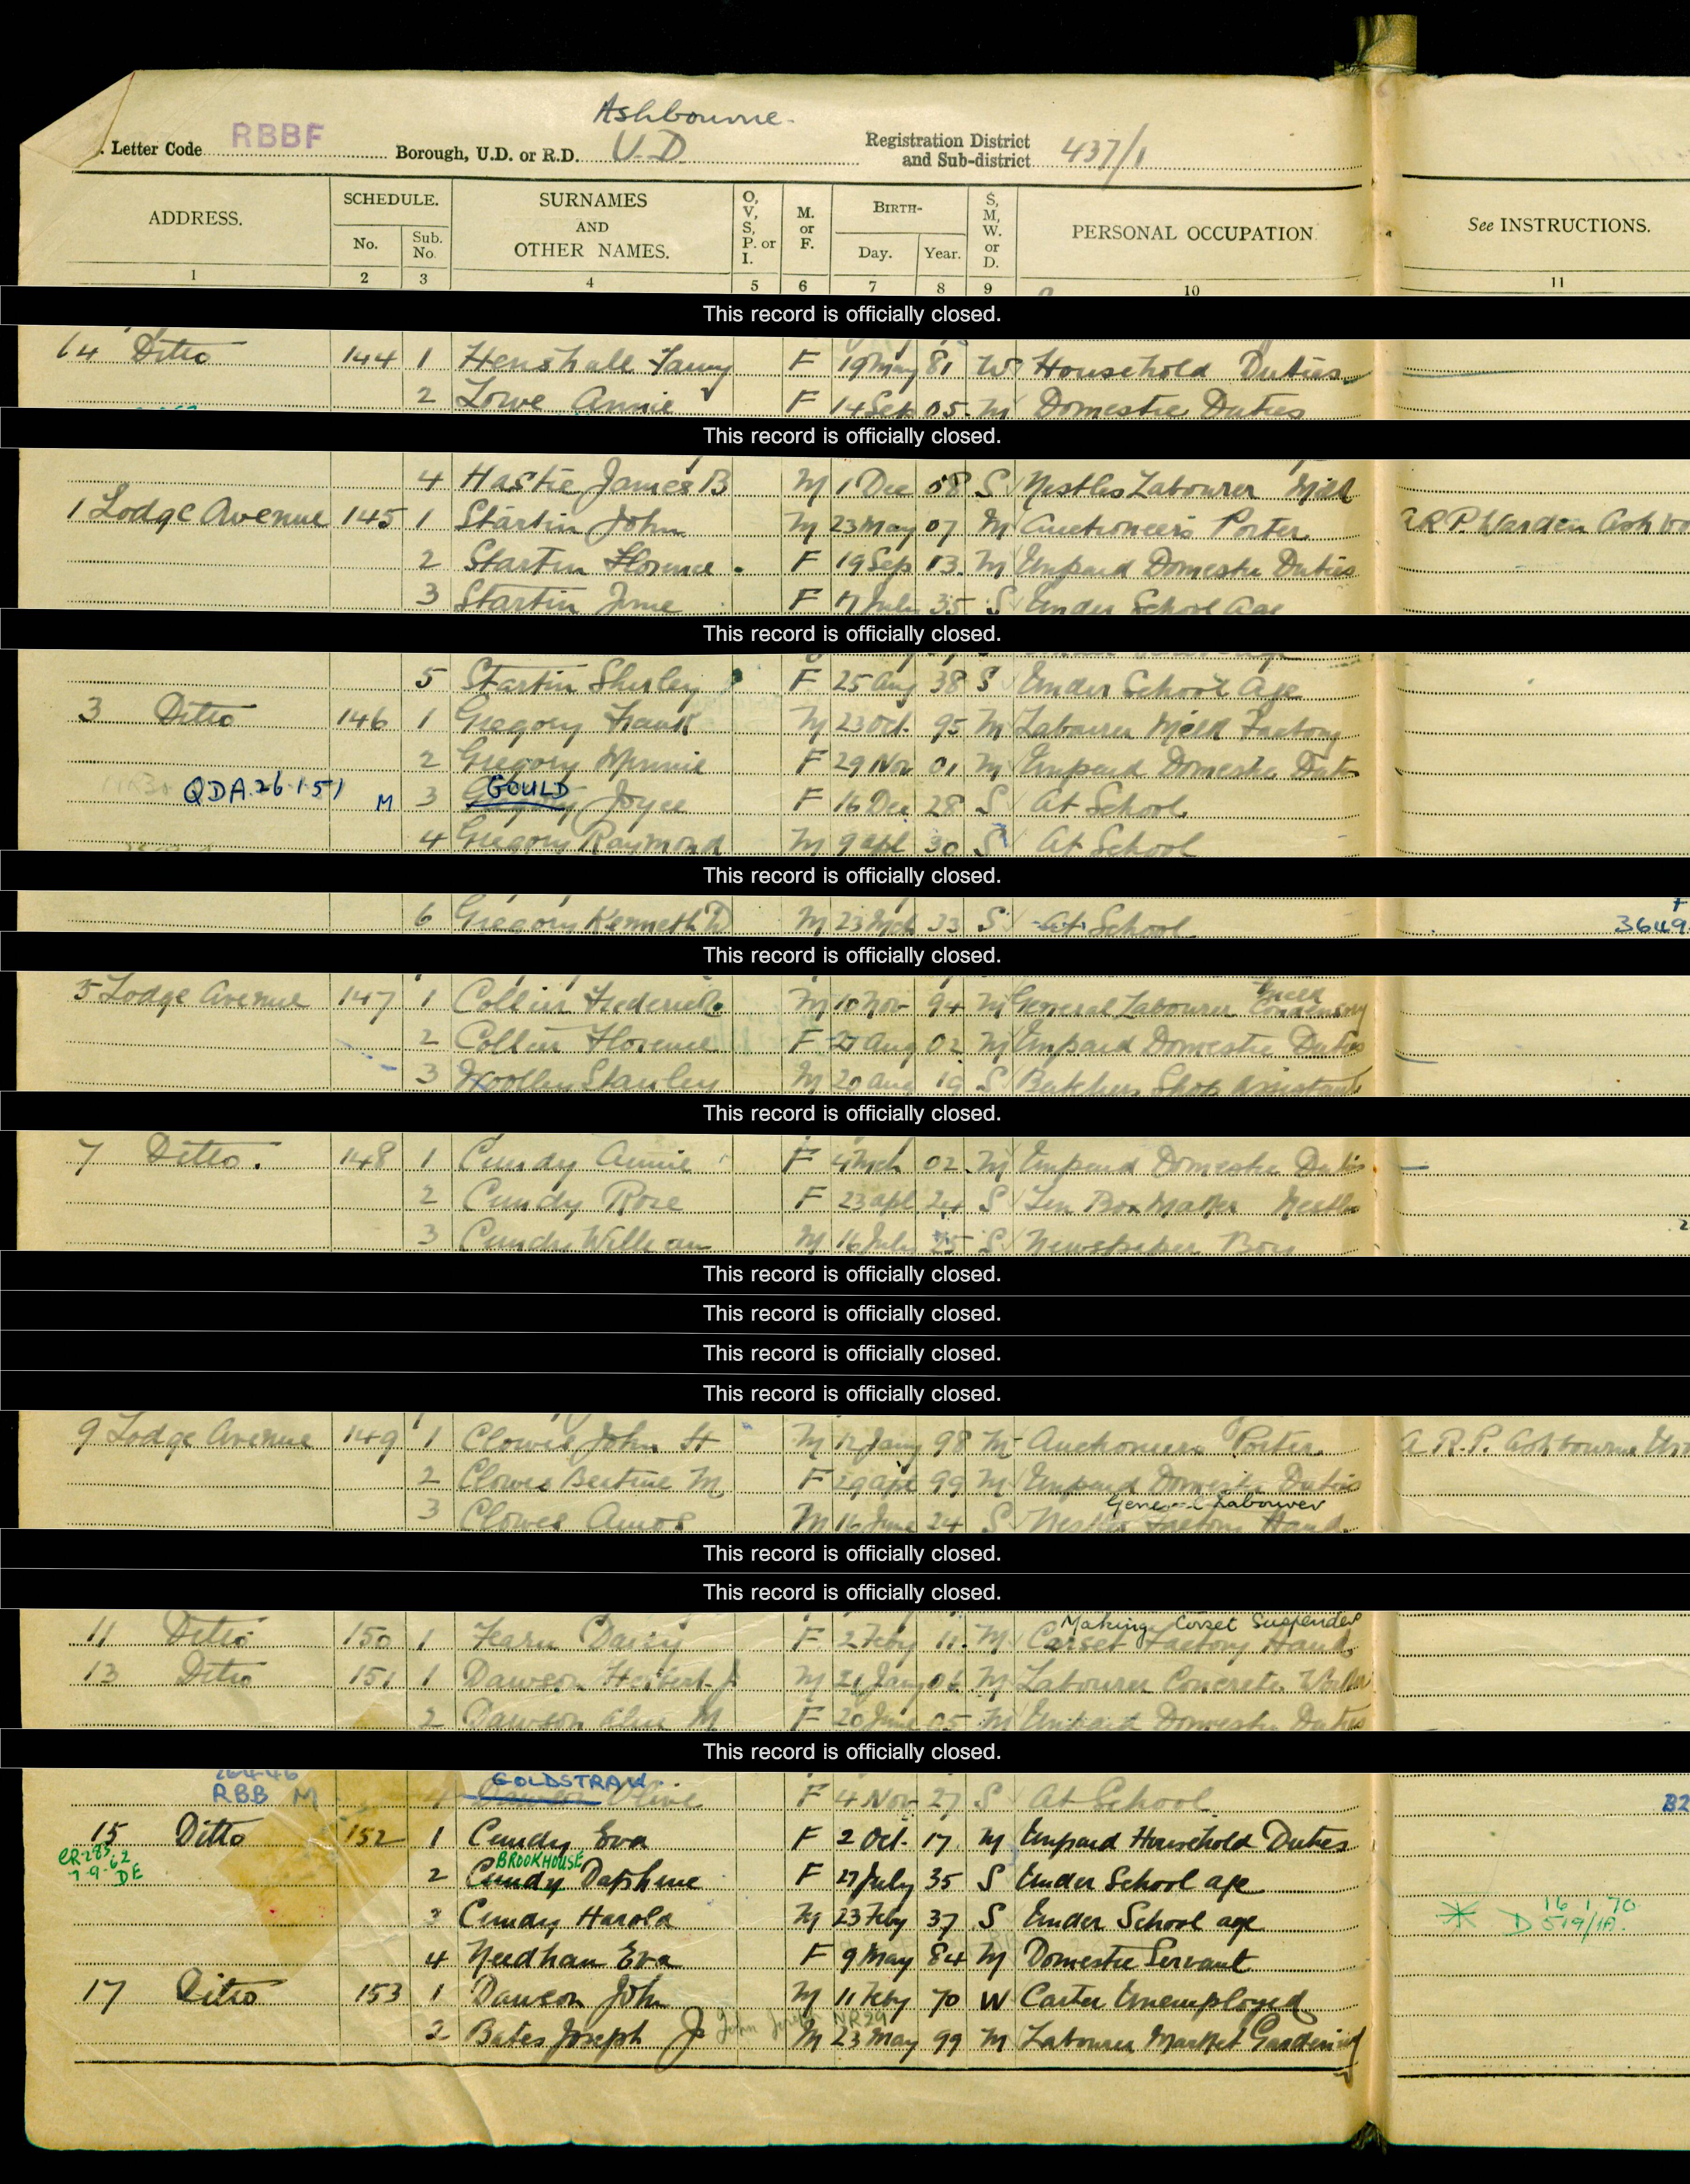 Ashbourne
. Letter Code RBBF Borough, U.D. or R.D. U.D Registration District and Sub-district 437/1
ADDRESS. SCHEDULE. No. Sub. No. SURNAMES AND OTHER NAMES. O, V, S, P. or I. M. or F. BIRTH- Day. Year. S, M, W. or D. PERSONAL OCCUPATION. See INSTRUCTIONS.
1 2 3 4 5 6 7 8 9 10 11
This record is officially closed.
14 Ditto 144 1 Henshall Fanny F 19 May 81 W Household Duties
2 Lowe Annie F 14 Sep 05 M Domestic Duties
This record is officially closed.
4 Hastie James B M 1 Dec 08 S Nestles Labourer Milk
1 Lodge Avenue 145 1 Startin John M 23 May 07 M Auctioneers Porter A.R.P. Warden Ashbo
2 Startin Florence F 19 Sep 13 M Unpaid Domestic Duties
3 Startin June F 17 July 35 S Under School Age
This record is officially closed.
5 Startin Shirley F 25 Aug 38 S Under School Age
3 Ditto 146 1 Gregory Frank M 23 Oct. 95 M Labourer Milk Factory
2 Gregory Minnie F 29 Nov 01 M Unpaid Domestic Duties
QDA 26.1.51 M 3 GOULD Joyce F 16 Dec 28 S At School
4 Gregory Raymond M 9 Apl 30 S At School
This record is officially closed.
6 Gregory Kenneth D M 23 Mch 33 S At School 3649
This record is officially closed.
5 Lodge Avenue 147 1 Collin Frederick M 10 Nov 94 M General Labourer Milk Condensory
2 Collin Florence F 27 Aug 02 M Unpaid Domestic Duties
3 Woolley Stanley M 20 Aug 19 S Butchers Shop Assistant
This record is officially closed.
7 Ditto. 148 1 Cundy Annie F 4 Mch 02 M Unpaid Domestic Duties
2 Cundy Rose F 23 Apl 24 S Tin Box Maker Nestles
3 Cundy William M 16 July 25 S Newspaper Boy
This record is officially closed.
This record is officially closed.
This record is officially closed.
This record is officially closed.
9 Lodge Avenue 149 1 Clowes John H M 12 Jany 98 M Auctioneers Porter A.R.P. Ashbourne
2 Clowes M F 29 Apl 99 M Unpaid Domestic Duties
General Labourer
3 Clowes Amos M 16 June 24 S Nestles Factory Hand
This record is officially closed.
This record is officially closed.
Making Corset Suspender
11 Ditto 150 1 Fearn Daisy F 2 Feby 11 M Corset Factory Hand
13 Ditto 151 1 Dawson Herbert J M 21 Jany 06 M Labourer Concrete Works
2 Dawson Alice M F 20 June 05 M Unpaid Domestic Duties
This record is officially closed.
GOLDSTRAW
RBB M 4 Dawson Olive F 4 Nov 27 S At School B2
15 Ditto 152 1 Cundy Eva F 2 Oct. 17 M Unpaid Household Duties
CR 283 7.9.62 DE BROOKHOUSE
2 Cundy Daphne F 27 July 35 S Under School age
3 Cundy Harold M 23 Feby 37 S Under School age 16 1 70 D 519/1A
4 Needham Eva F 9 May 84 M Domestic Servant
17 Ditto 153 1 Dawson John M 11 Feby 70 W Carter Unemployed
2 Bates Joseph J John NR29 M 23 May 99 M Labourer Market Gardening